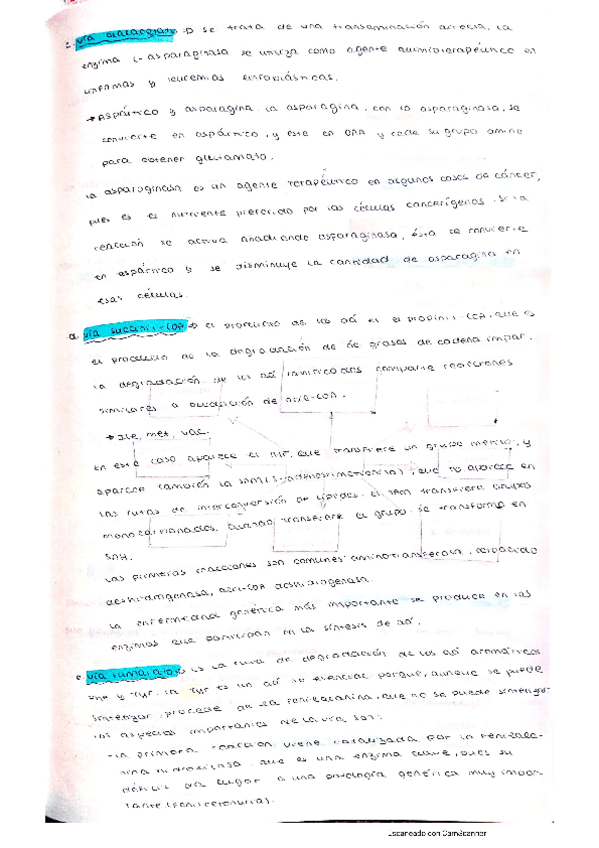 c. vía oxalacetato → se trata de una transaminación directa, la
enzima L-asparaginasa se utiliza como agente quimioterapéutico en
linfomas y leucemias linfoblásticas.
→ Aspártico y asparagina. la asparagina, con la asparaginasa, se
convierte en aspártico, y este en OAA y cede su grupo amino
para obtener glutamato.
la asparaginasa es un agente terapéutico en algunos casos de cáncer,
pues es el nutriente preferido por las células cancerígenas. Si la
reacción se activa añadiendo asparaginasa, ésta se convierte
en aspártico y se disminuye la cantidad de asparagina en
esas células.
d. vía succinil-CoA → el producto de los aá es el propinil-CoA, que es
el producto de la degradación de ác grasos de cadena impar.
la degradación de los aá ramificados comparte reacciones
similares a oxidación de acil-CoA.
→ Ile, Met, Val.
En este caso aparece el THF, que transfiere un grupo metilo, y
aparece también la SAM (S-adenosilmetionina), que no aparece en
las rutas de interconversión de lípidos. El SAM transfiere grupos
monocarbonados. Cuando transfiere el grupo se transforma en
SAH.
Las primeras reacciones son comunes: aminotransferasa, cetoácido
deshidrogenasa, acil-CoA deshidrogenasa.
la enfermedad genética más importante se produce en las
enzimas que participan en la síntesis de aá.
e. vía fumarato → es la ruta de degradación de los aá aromáticos
Phe y Tyr. la Tyr es un aá no esencial porque, aunque se puede
sintetizar, procede de la fenilalanina, que no se puede sintetizar.
los aspectos importantes de la vía son:
- la primera reacción viene catalizada por la fenilala-
nina hidroxilasa, que es una enzima clave, pues su
déficit da lugar a una patología genética muy impor-
tante (fenilcetonuria).
Escaneado con CamScanner